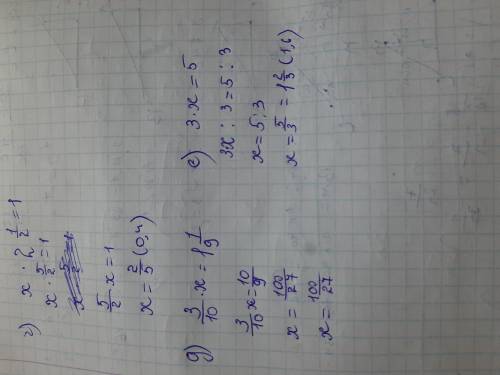 г) x · 2 1/2 = 1
x · 5/2 = 1
5/2 x = 1
x = 2/5 (0,4)
g) 3/10 · x = 1 1/9
3/10 x = 10/9
x = 100/27
x = 100/27
e) 3 · x = 5
3x : 3 = 5 : 3
x = 5 : 3
x = 5/3 = 1 2/3 (1,6)